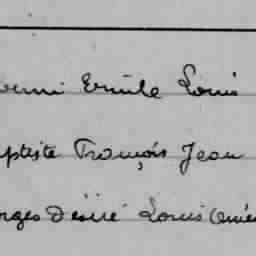 Emile Louis
aptiste François Jean
orges Désiré Louis Amé